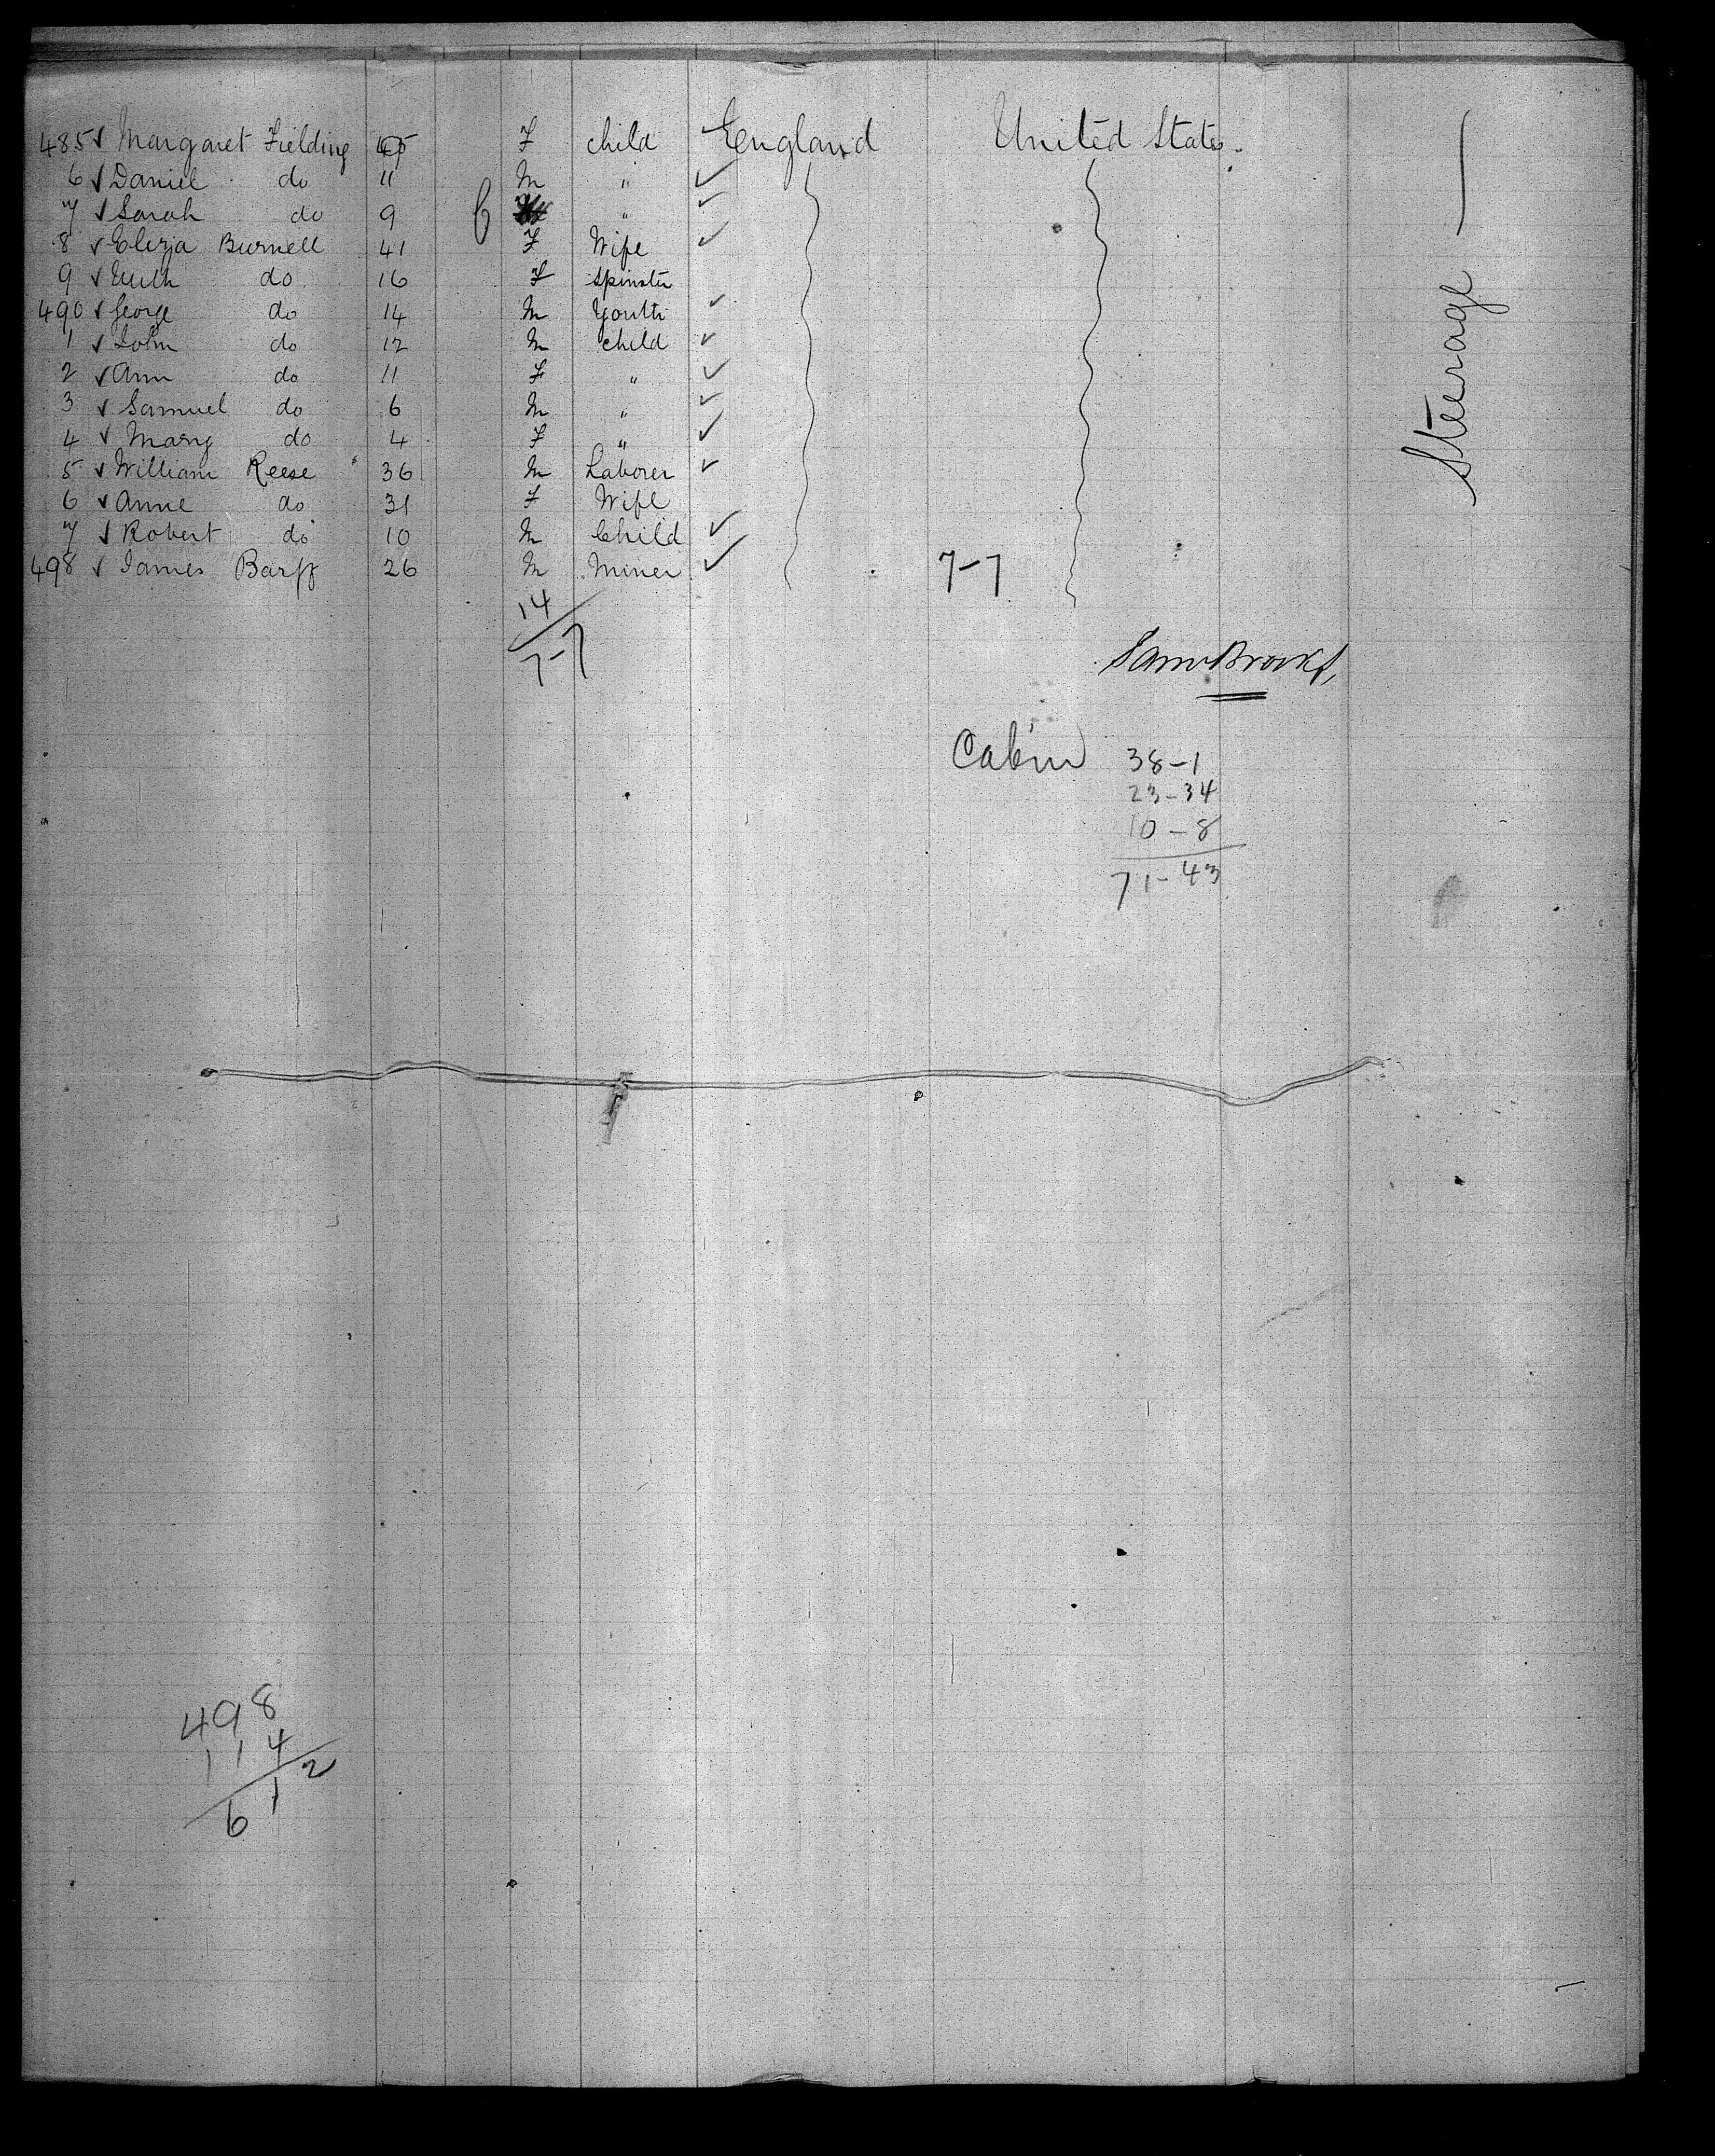 485 ✓ Margaret Fielding F child England United States.
6 ✓ Daniel do 11 M " ✓
7 ✓ Sarah do 9 " ✓
8 ✓ Eliza Burnell 41 F Wife ✓
9 ✓ Ruth do 16 F Spinster
490 ✓ George do 14 M Youth ✓
1 ✓ John do 12 M child ✓
2 ✓ Ann do 11 F " ✓
3 ✓ Samuel do 6 M " ✓
4 ✓ Mary do 4 F " ✓
5 ✓ William Reese 36 M Laborer ✓
6 ✓ Anne do 31 F Wife
7 ✓ Robert do 10 M Child ✓
498 ✓ James Barff 26 M Miner ✓ 7-7
Steerage
14
7-7
Saml Brooks,
Cabin 38-1
23-34
10-8
71-43
498
114
612